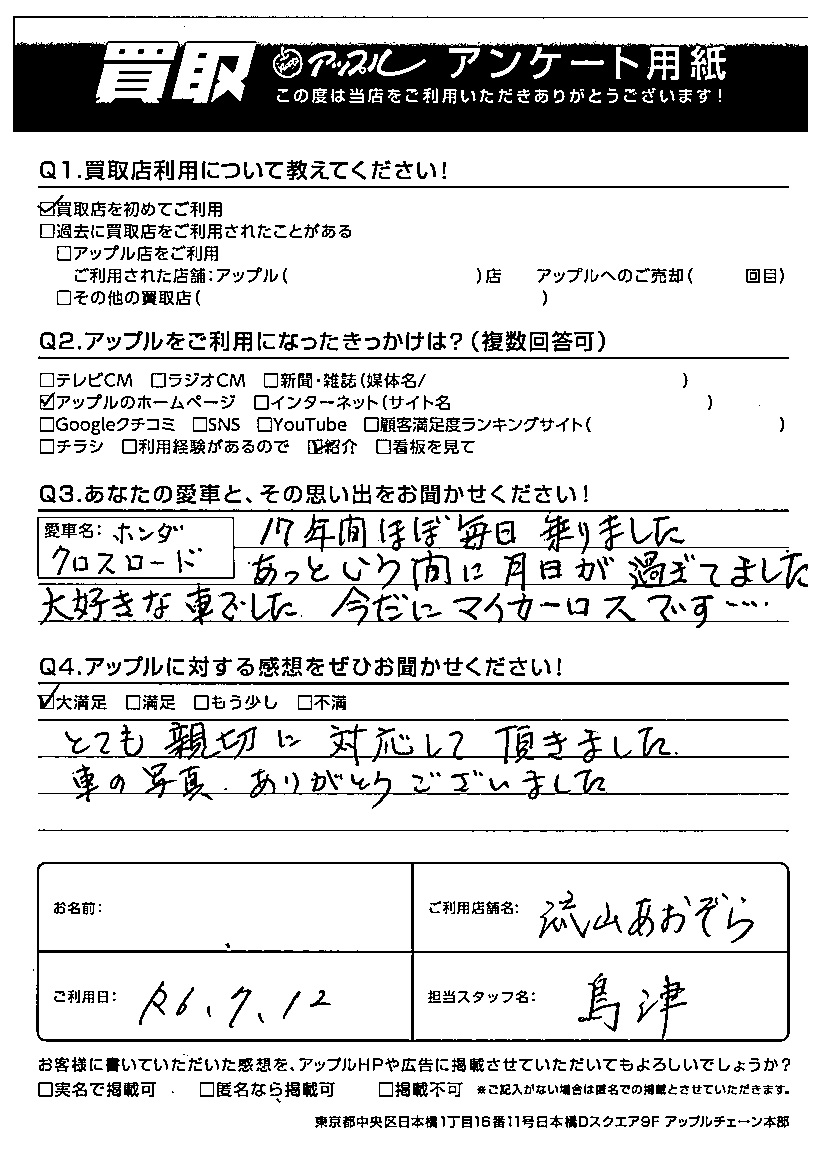 買取 アップル アンケート用紙
この度は当店をご利用いただきありがとうございます!
Q1.買取店利用について教えてください!
☑買取店を初めてご利用
□過去に買取店をご利用されたことがある
□アップル店をご利用
ご利用された店舗:アップル( )店 アップルへのご売却( 回目)
□その他の買取店( )
Q2.アップルをご利用になったきっかけは?(複数回答可)
□テレビCM □ラジオCM □新聞・雑誌(媒体名/ )
☑アップルのホームページ □インターネット(サイト名 )
□Googleクチコミ □SNS □YouTube □顧客満足度ランキングサイト( )
□チラシ □利用経験があるので ☑紹介 □看板を見て
Q3.あなたの愛車と、その思い出をお聞かせください!
愛車名: ホンダ
クロスロード
17年間ほぼ毎日乗りました
あっという間に月日が過ぎてました
大好きな車でした 今だにマイカーロスです…
Q4.アップルに対する感想をぜひお聞かせください!
☑大満足 □満足 □もう少し □不満
とても親切に対応して頂きました
車の写真 ありがとうございました
お名前:
ご利用店舗名: 流山あおぞら
ご利用日: R6、7、12
担当スタッフ名: 島津
お客様に書いていただいた感想を、アップルHPや広告に掲載させていただいてもよろしいでしょうか?
□実名で掲載可 □匿名なら掲載可 □掲載不可 ※ご記入がない場合は匿名での掲載とさせていただきます。
東京都中央区日本橋1丁目16番11号日本橋Dスクエア9F アップルチェーン本部